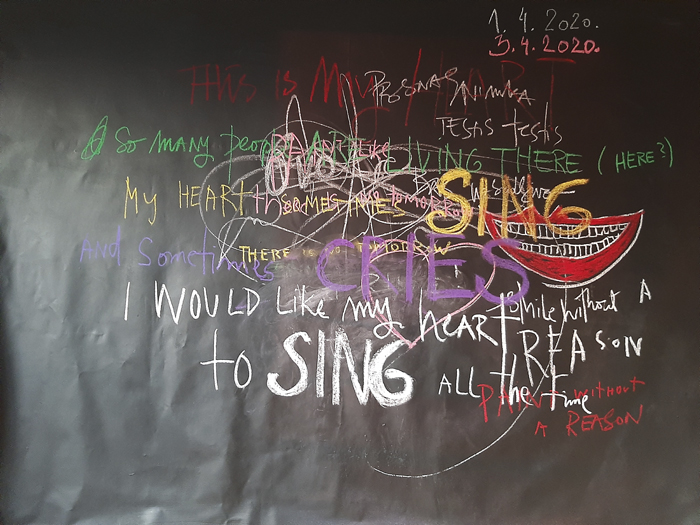 1. 4. 2020.
3. 4. 2020.
THIS IS MY HEART
TESAS testis
So MANY people ARE LIVING THERE (HERE?)
My HEART SOMETIMES SING
AND Sometimes CRIES
THERE IS NO TOMORROW
I WOULD Like my heart
to SING ALL the time
smile without A
REASON
PAINT WITHOUT
A REASON